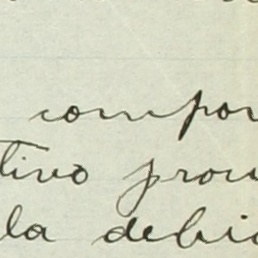 compor
tivo prou
la debi